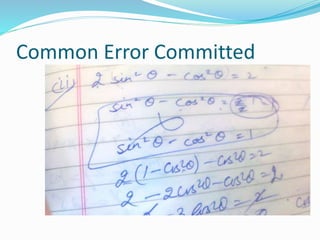 Common Error Committed
(ii) 2 sin²θ - cos²θ = 2
sin²θ - cos²θ =
sin²θ - cos²θ = 1
2(1-cos²θ) - cos²θ = 2
2 - 2cos²θ - cos²θ = 2
-3cos²θ =